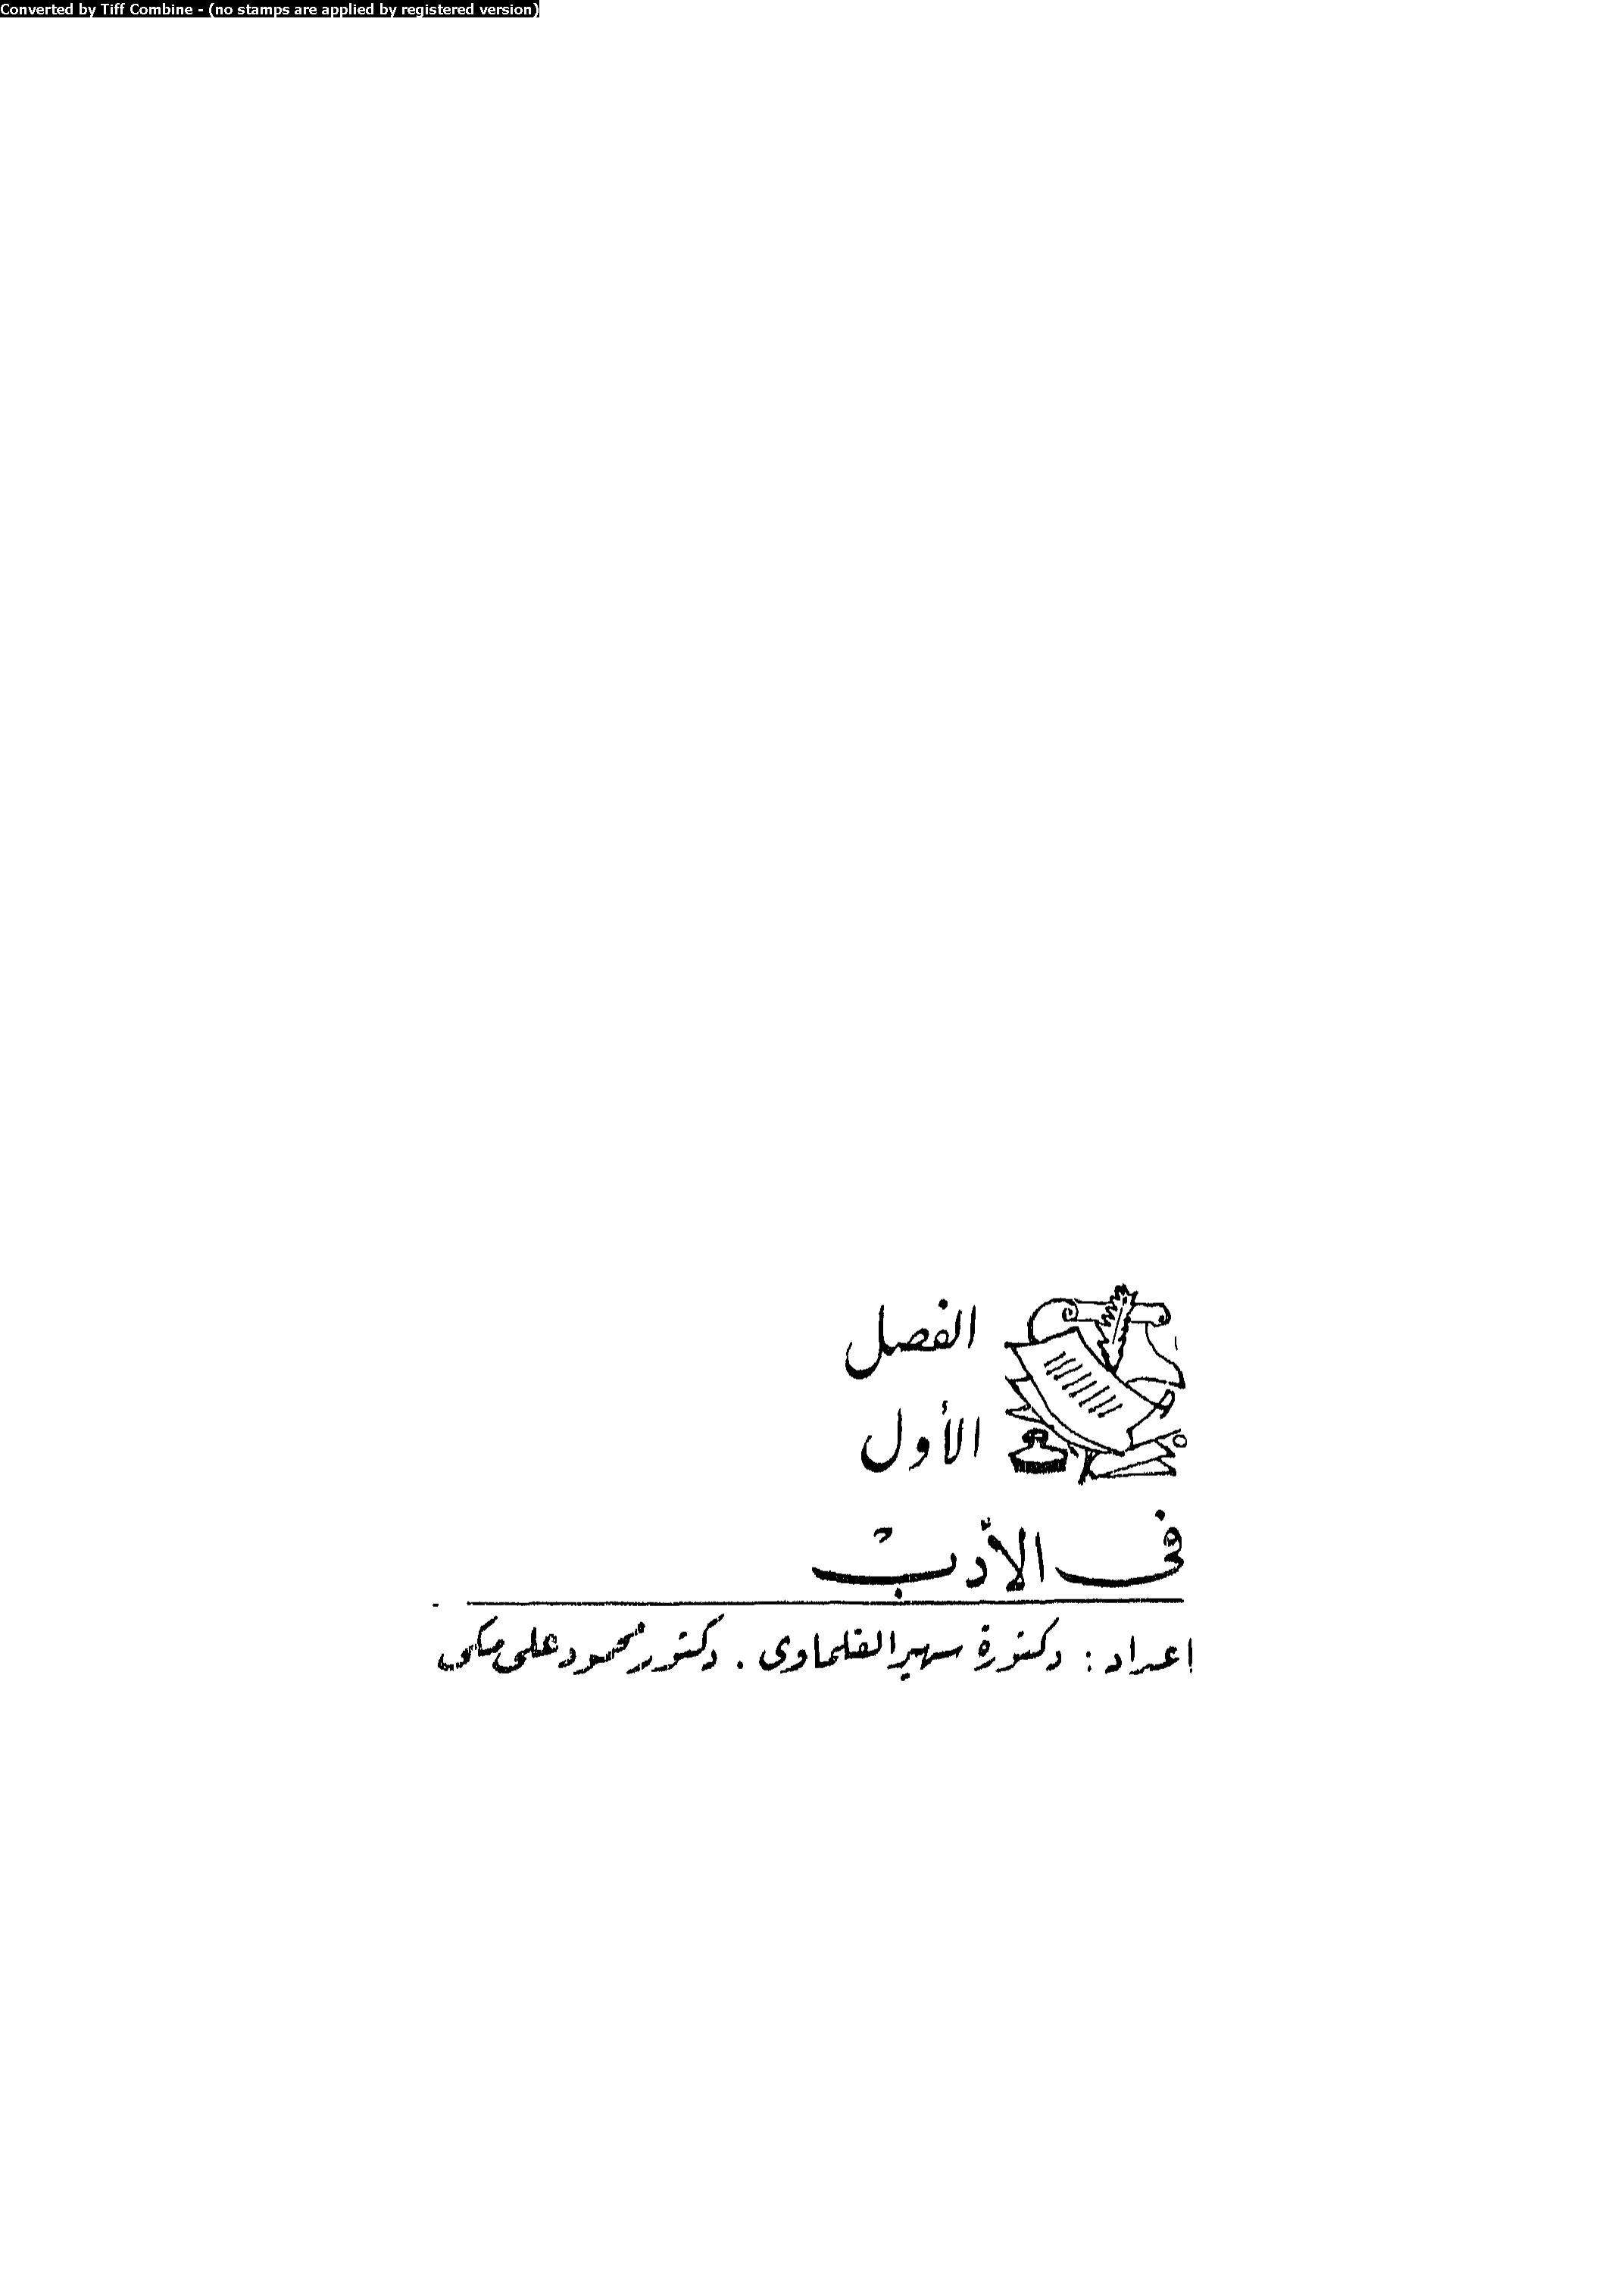 Converted by Tiff Combine - (no stamps are applied by registered version)
الفصل
الأول
فى الأدب
إعداد : دكتورة سهير القلماوى . دكتور محمود على مكى